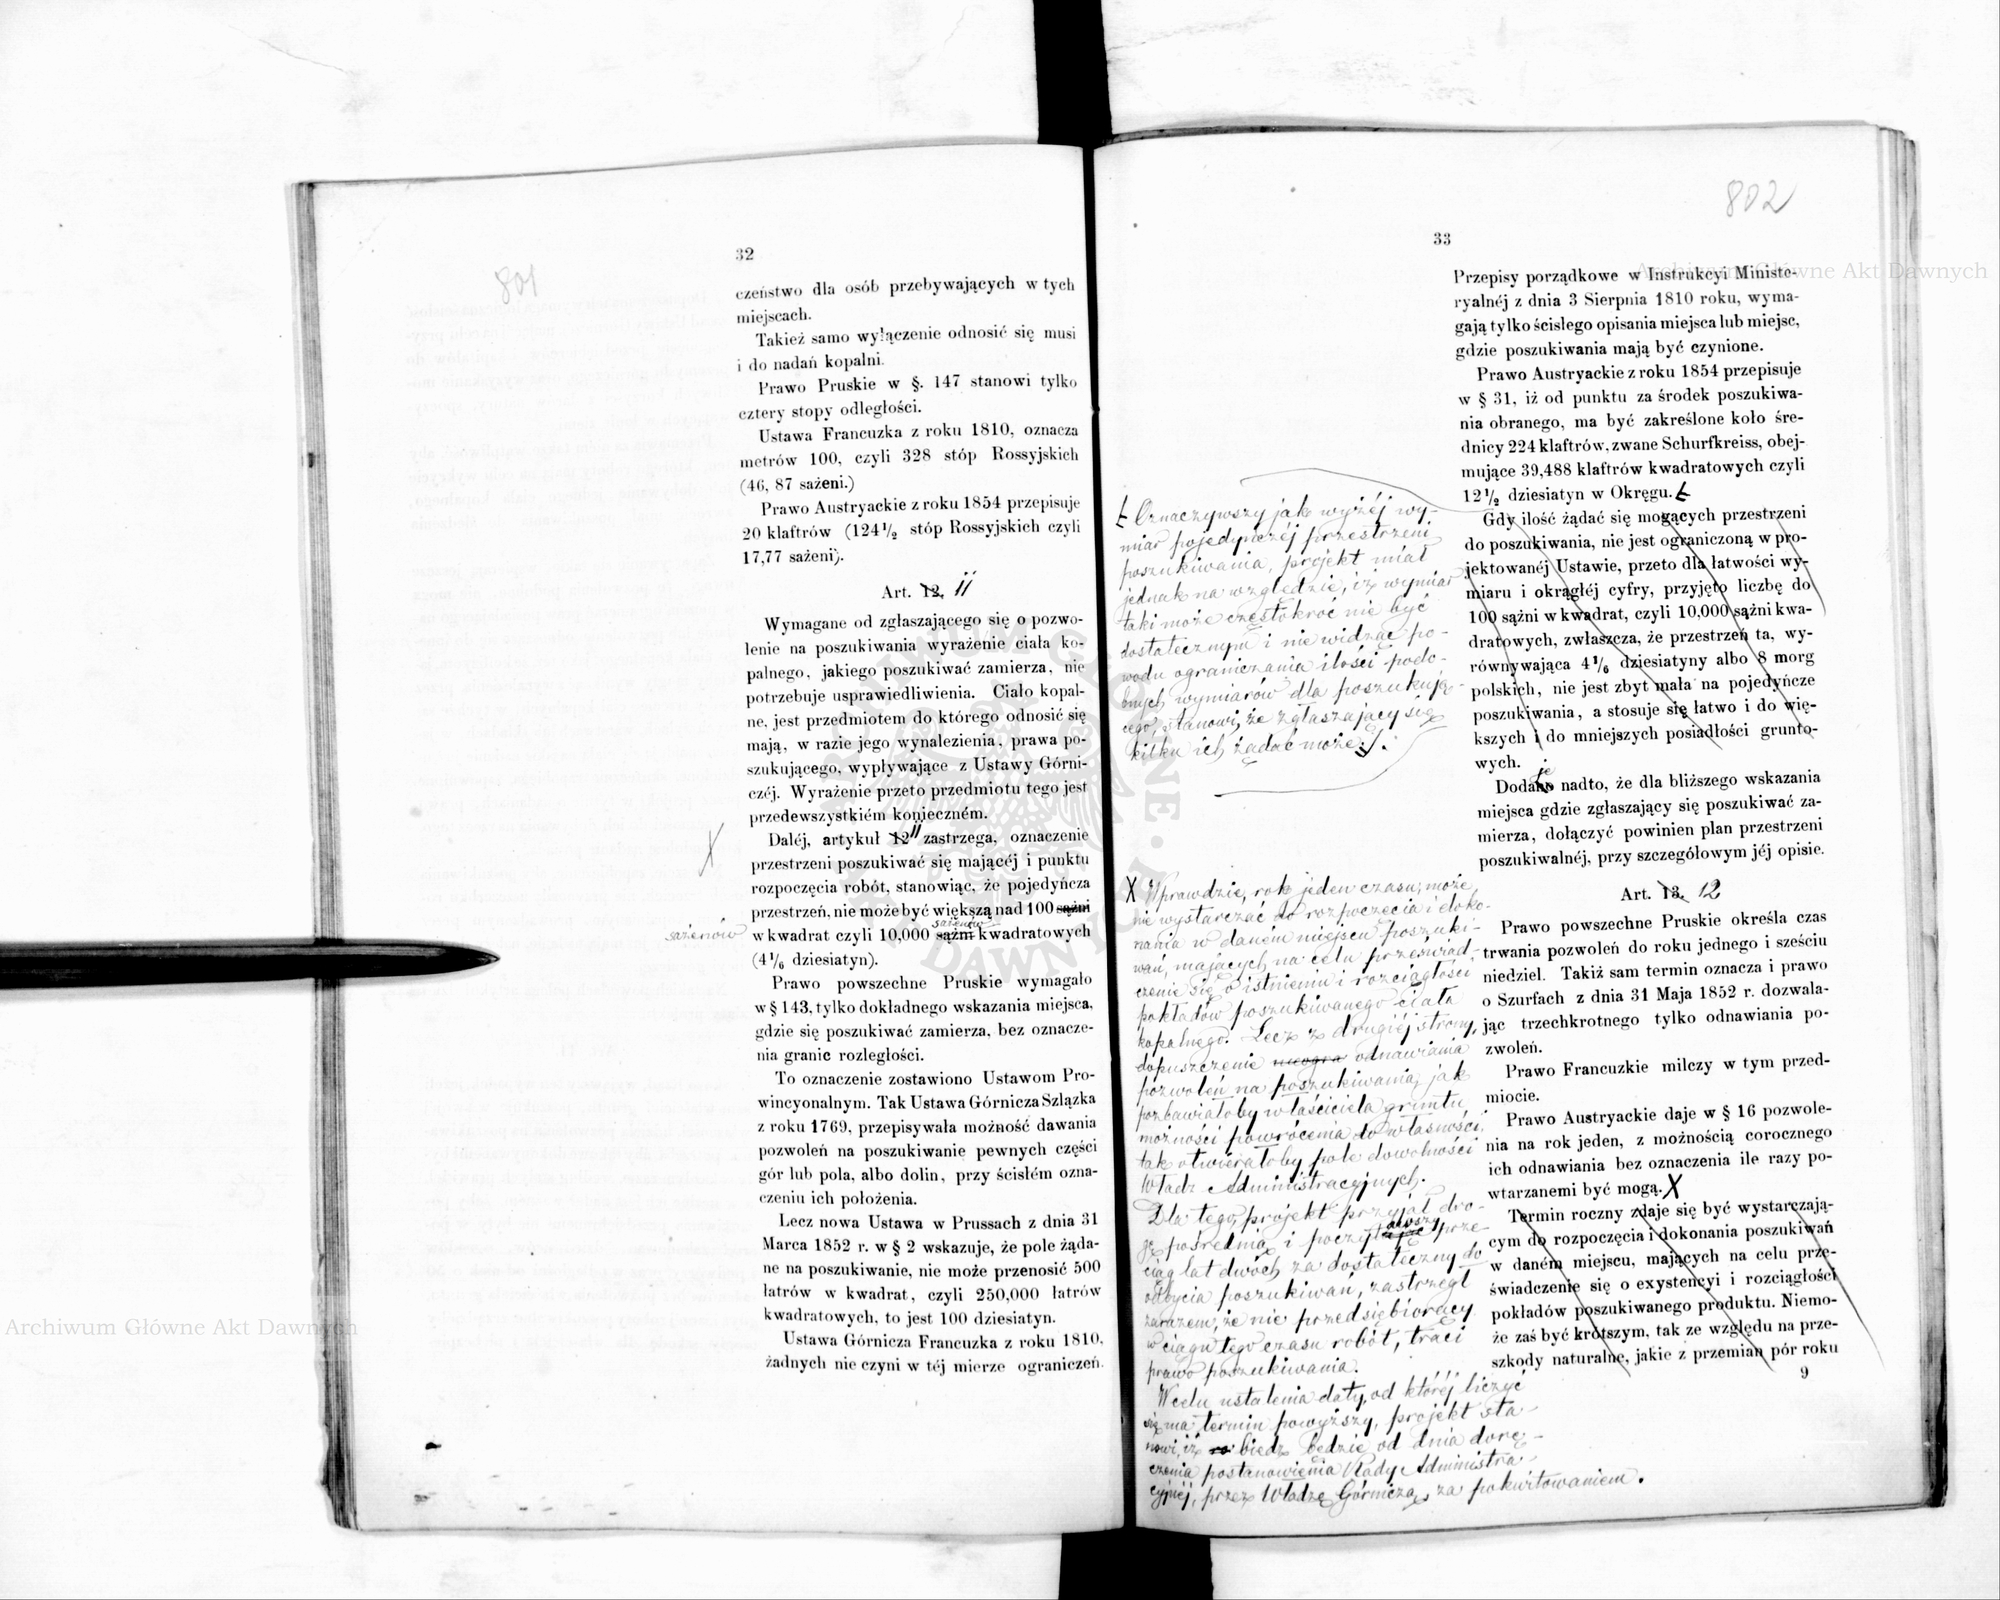 801
32
czeństwo dla osób przebywających w tych
miejscach.
Takież samo wyłączenie odnosić się musi
i do nadań kopalni.
Prawo Pruskie w §. 147 stanowi tylko
cztery stopy odległości.
Ustawa Francuzka z roku 1810, oznacza
metrów 100, czyli 328 stóp Rossyjskich
(46, 87 sażeni.)
Prawo Austryackie z roku 1854 przepisuje
20 klaftrów (124½ stóp Rossyjskich czyli
17,77 sażeni).
Art. 12. 11
Wymagane od zgłaszającego się o pozwo-
lenie na poszukiwania wyrażenie ciała ko-
palnego, jakiego poszukiwać zamierza, nie
potrzebuje usprawiedliwienia. Ciało kopal-
ne, jest przedmiotem do którego odnosić się
mają, w razie jego wynalezienia, prawa po-
szukującego, wypływające z Ustawy Górni-
czéj. Wyrażenie przeto przedmiotu tego jest
przedewszystkiém konieczném.
X
Daléj, artykuł 12 11 zastrzega, oznaczenie
przestrzeni poszukiwać się mającéj i punktu
rozpoczęcia robót, stanowiąc, że pojedyńcza
przestrzeń, nie może być większą nad 100 sążni
sażenów
sażenów
w kwadrat czyli 10,000 sążni kwadratowych
(4⅙ dziesiatyn).
Prawo powszechne Pruskie wymagało
w § 143, tylko dokładnego wskazania miejsca,
gdzie się poszukiwać zamierza, bez oznacze-
nia granic rozległości.
To oznaczenie zostawiono Ustawom Pro-
wincyonalnym. Tak Ustawa Górnicza Szlązka
z roku 1769, przepisywała możność dawania
pozwoleń na poszukiwanie pewnych części
gór lub pola, albo dolin, przy ścisłém ozna-
czeniu ich położenia.
Lecz nowa Ustawa w Prussach z dnia 31
Marca 1852 r. w § 2 wskazuje, że pole żąda-
ne na poszukiwanie, nie może przenosić 500
łatrów w kwadrat, czyli 250,000 łatrów
kwadratowych, to jest 100 dziesiatyn.
Ustawa Górnicza Francuzka z roku 1810,
żadnych nie czyni w téj mierze ograniczeń.
802
33
Przepisy porządkowe w Instrukcyi Ministe-
ryalnéj z dnia 3 Sierpnia 1810 roku, wyma-
gają tylko ścisłego opisania miejsca lub miejsc,
gdzie poszukiwania mają być czynione.
Prawo Austryackie z roku 1854 przepisuje
w § 31, iż od punktu za środek poszukiwa-
nia obranego, ma być zakreślone koło śre-
dnicy 224 klaftrów, zwane Schurfkreiss, obej-
mujące 39,488 klaftrów kwadratowych czyli
12½ dziesiatyn w Okręgu.
Oznaczywszy jak wyżéj wy-
miar pojedynczéj przestrzeni
poszukiwania, projekt miał
jednak na względzie, iż wymiar
taki może częstokroć nie być
dostatecznym i nie widząc po-
wodu ograniczania ilości podo-
bnych wymiarów dla poszukują-
cego, stanowi, że zgłaszający się
kilku ich żądać może.
Gdy ilość żądać się mogących przestrzeni
do poszukiwania, nie jest ograniczoną w pro-
jektowanéj Ustawie, przeto dla łatwości wy-
miaru i okrągłéj cyfry, przyjęto liczbę do
100 sążni w kwadrat, czyli 10,000 sążni kwa-
dratowych, zwłaszcza, że przestrzeń ta, wy-
równywająca 4⅙ dziesiatyny albo 8 morg
polskich, nie jest zbyt mała na pojedyńcze
poszukiwania, a stosuje się łatwo i do wię-
kszych i do mniejszych posiadłości grunto-
wych.
je
Dodano nadto, że dla bliższego wskazania
miejsca gdzie zgłaszający się poszukiwać za-
mierza, dołączyć powinien plan przestrzeni
poszukiwalnéj, przy szczegółowym jéj opisie.
Art. 13. 12
Prawo powszechne Pruskie określa czas
trwania pozwoleń do roku jednego i sześciu
niedziel. Takiż sam termin oznacza i prawo
o Szurfach z dnia 31 Maja 1852 r. dozwala-
jąc trzechkrotnego tylko odnawiania po-
zwoleń.
Prawo Francuzkie milczy w tym przed-
miocie.
Prawo Austryackie daje w § 16 pozwole-
nia na rok jeden, z możnością corocznego
ich odnawiania bez oznaczenia ile razy po-
wtarzanemi być mogą. X
X Wprawdzie, rok jeden czasu, może
nie wystarczać do rozpoczęcia i doko-
nania w daném miejscu poszuki-
wań, mających na celu przeświad-
czenie się o istnieniu i rozciągłości
pokładów poszukiwanego ciała
kopalnego. Lecz z drugiéj strony,
dopuszczenie nieogra odnawiania
pozwoleń na poszukiwania, jak
pozbawiałoby właściciela gruntu
możności powrócenia do własności,
tak otwierałoby pole dowolności
Władz Administracyjnych.
Dla tego, projekt przyjął dro-
gę pośrednią i poczytawszy prze-
ciąg lat dwóch za dostateczny do
odbycia poszukiwań, zastrzegł
zarazem, że nie przedsiębiorący
w ciągu tego czasu robót, traci
prawo poszukiwania.
W celu ustalenia daty, od któréj liczyć
się ma termin powyższy, projekt sta-
nowi, iż biedz będzie od dnia dorę-
czenia postanowienia Rady Administra-
cyjnéj, przez Władzę Górniczą, za pokwitowaniem.
Termin roczny zdaje się być wystarczają-
cym do rozpoczęcia i dokonania poszukiwań
w daném miejscu, mających na celu prze-
świadczenie się o exystencyi i rozciągłości
pokładów poszukiwanego produktu. Niemo-
że zaś być krótszym, tak ze względu na prze-
szkody naturalne, jakie z przemian pór roku
9
Archiwum Główne Akt Dawnych
Archiwum Główne Akt Dawnych
ARCHIWUM GŁÓWNE AKT DAWNYCH